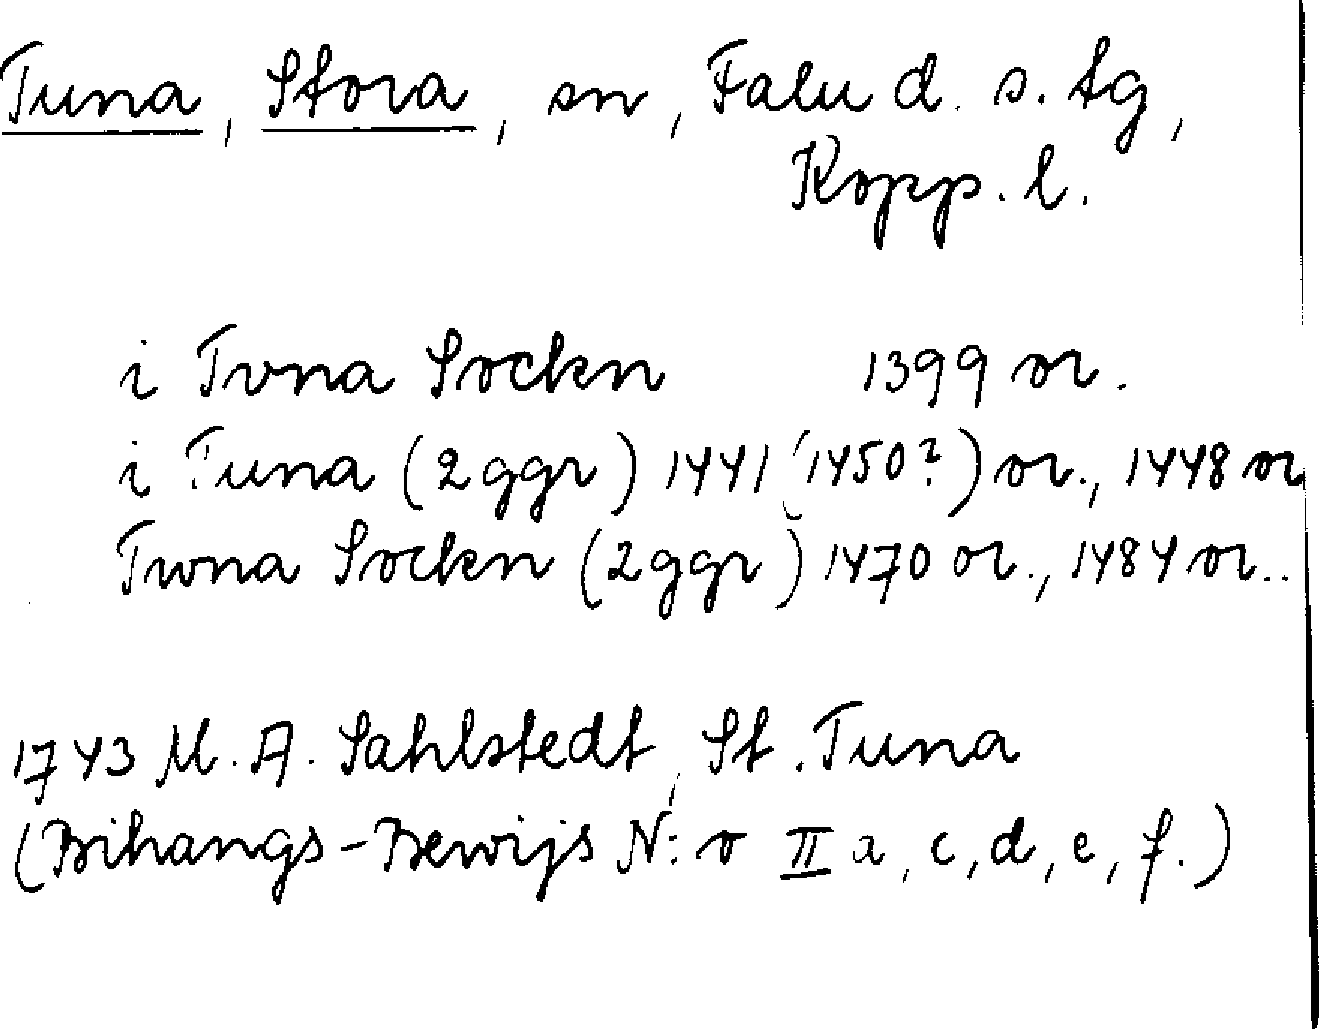 Tuna, Stora, sn, Falu d. s. tg,
Kopp. l.
i Tvna Sockn 1399 or.
i Tuna (2 ggr) 1441 (1450?) or., 1448 or
Twna Sockn (2 ggr) 1470 or., 1484 or..
1743 M. A. Sahlstedt, St. Tuna
(Bihangs-Bewijs N:o II a, c, d, e, f.)